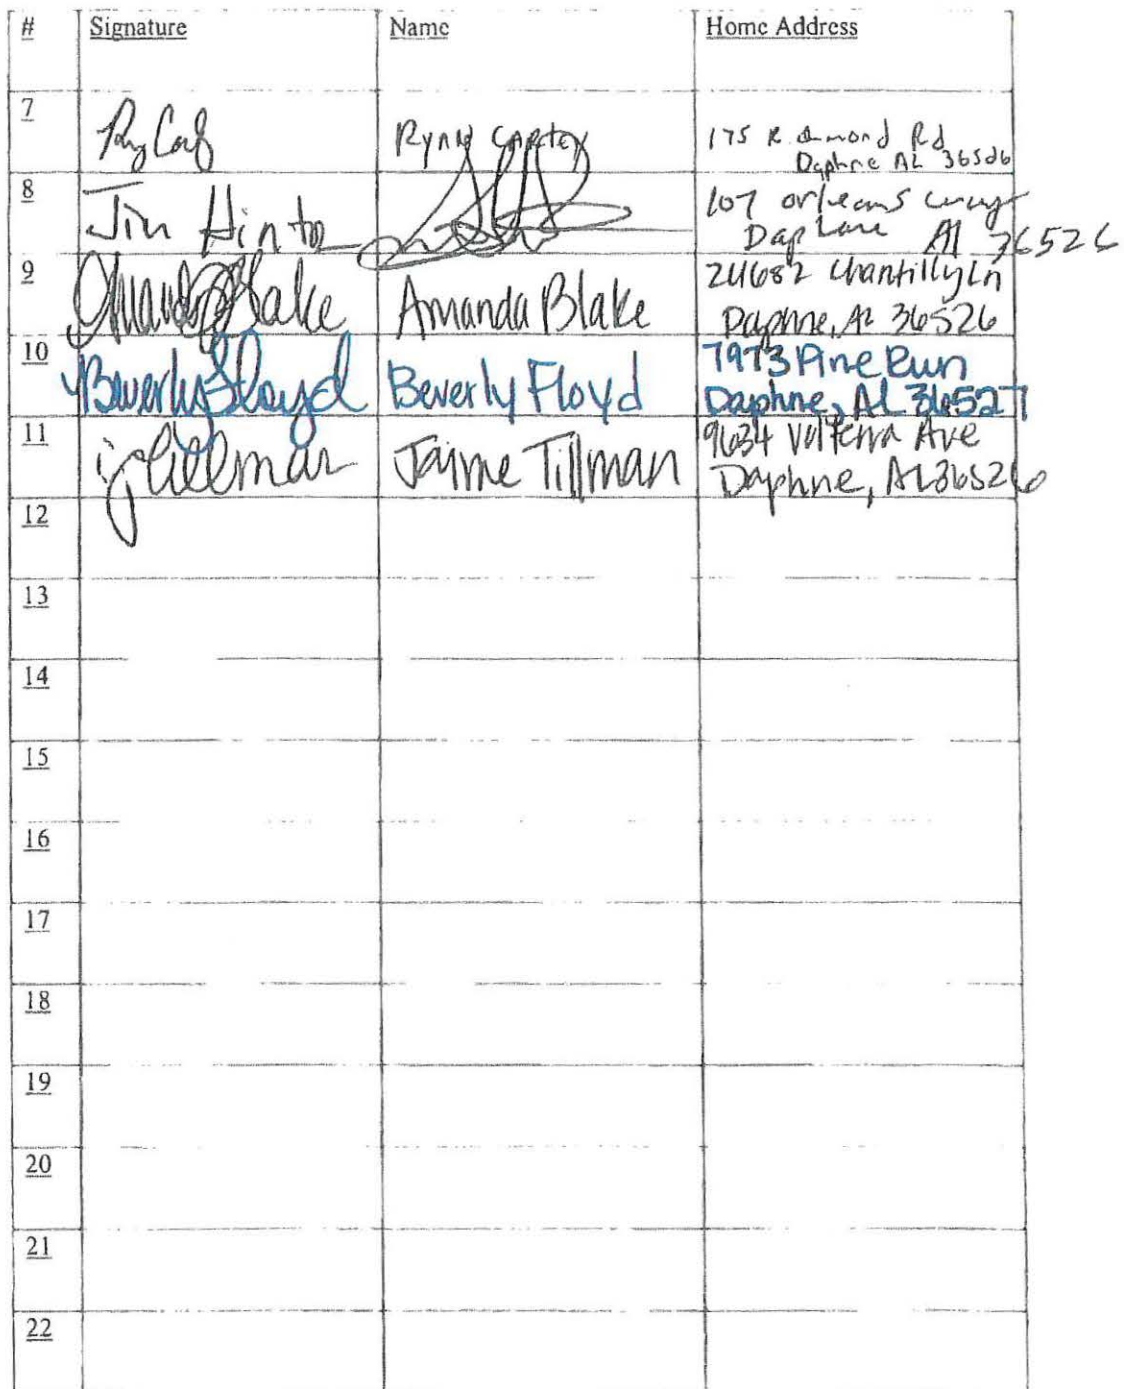 # Signature Name Home Address
7 RYNN CARTEY 175 Rd
Daphne AL 36526
8 Jim Hinto 107 orleans
Al 36526
9 Amanda Blake Amanda Blake 24682 Chantilly Ln
Daphne, AL 36526
10 Beverly Floyd Beverly Floyd 7973 Pine Run
Daphne, AL 36527
11 jtillman Jaime Tillman 9634 Volterra Ave
Daphne, AL 36526
12
13
14
15
16
17
18
19
20
21
22